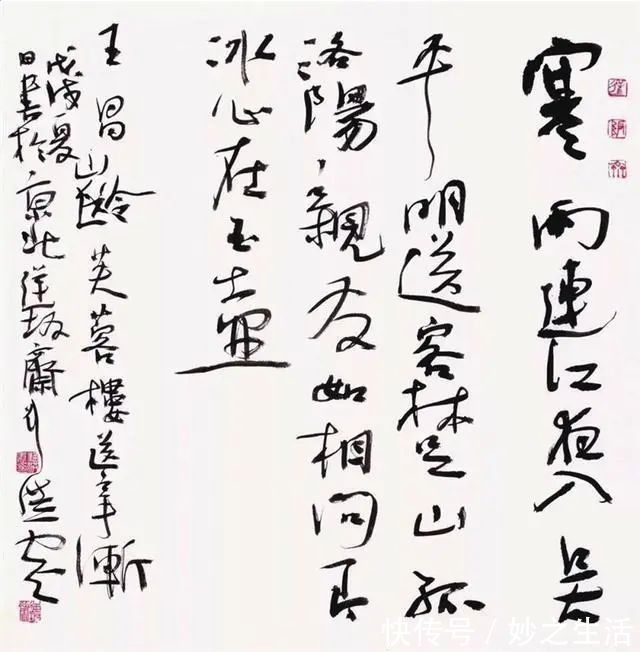 寒雨連江夜入吴
平明送客楚山孤
洛陽親友如相問一片
冰心在玉壺
王昌齡芙蓉樓送辛漸
戊戌夏
日書於京北齋
快传号 / 妙之生活